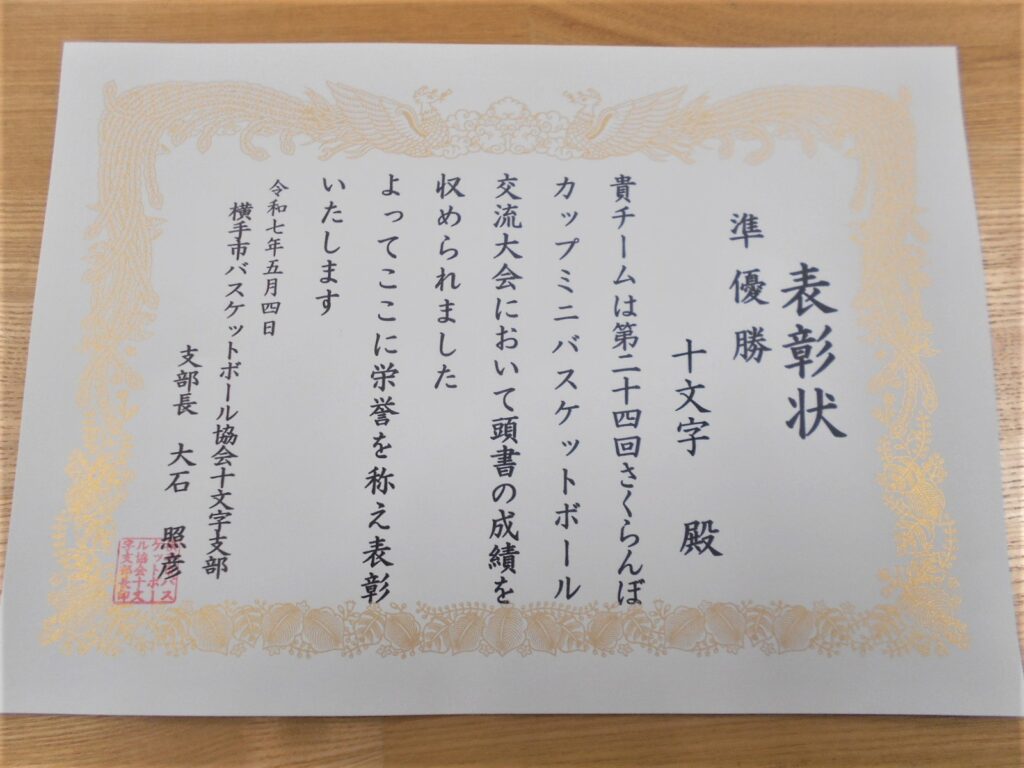 表彰状
準優勝
十文字 殿
貴チームは第二十四回さくらんぼ
カップミニバスケットボール
交流大会において頭書の成績を
収められました
よってここに栄誉を称え表彰
いたします
令和七年五月四日
横手市バスケットボール協会十文字支部
支部長 大石 照彦